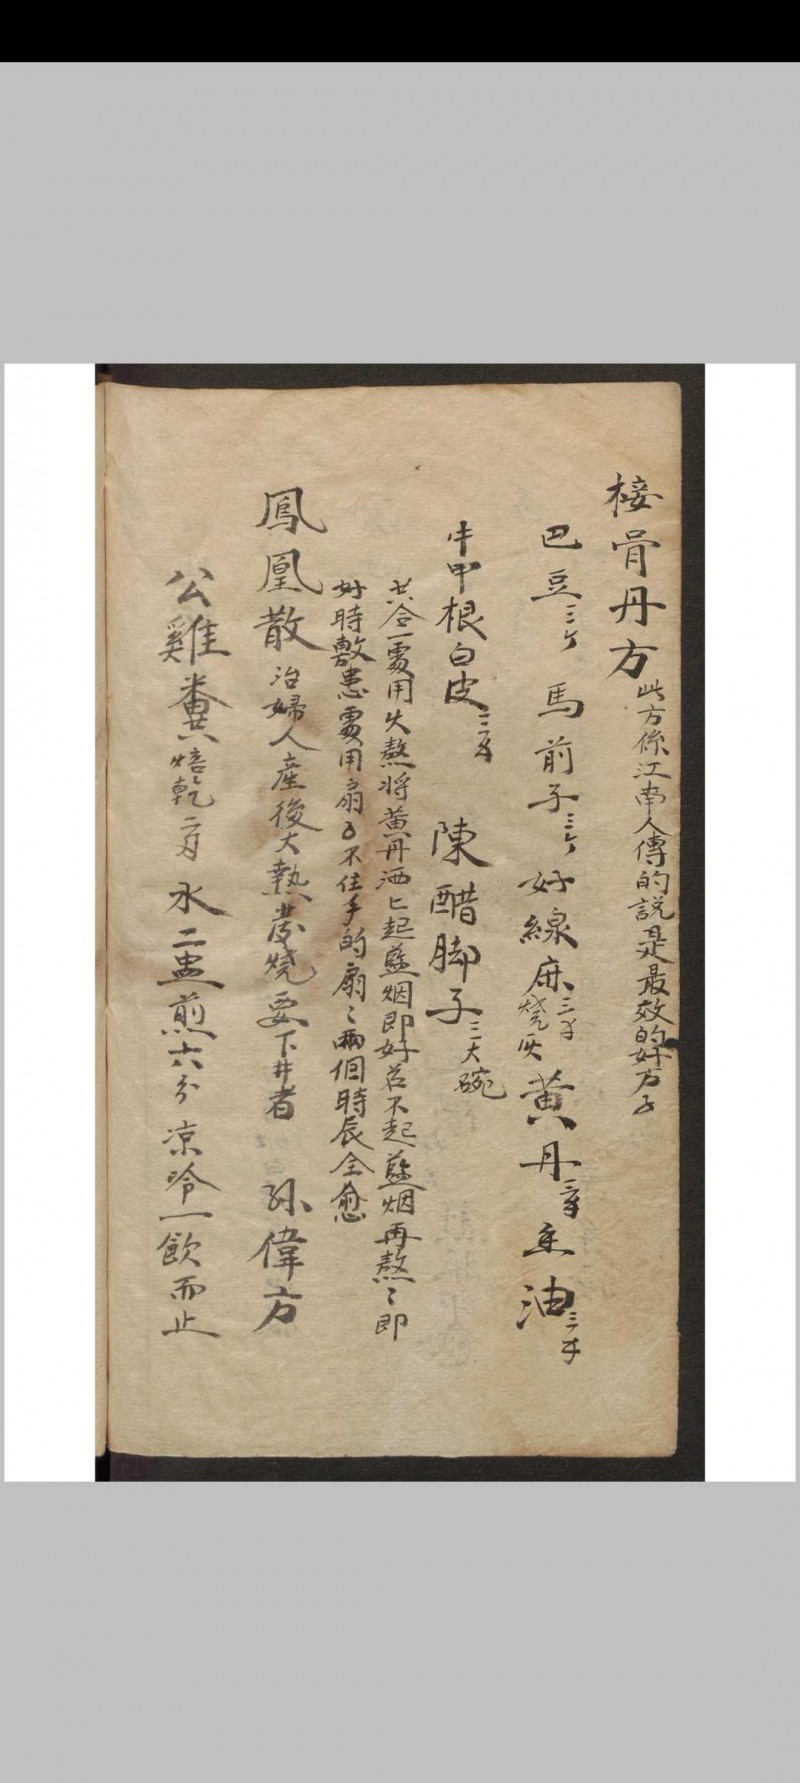 接骨丹方 此方係江南人傳的說是最效的好方子
巴豆三个 馬前子三个 好線麻三子燒灰 黃丹 香油三子
牛甲根白皮三子 陳醋脚子三大碗
共合一處用火熬將黃丹洒上起藍烟即好若不起藍烟再熬〻即
好時敷患處用扇子不住手的扇〻兩個時辰全愈
鳳凰散 治婦人產後大熱發燒要下井者 孫偉方
公雞糞焙乾 水二盅煎六分凉冷一飲而止